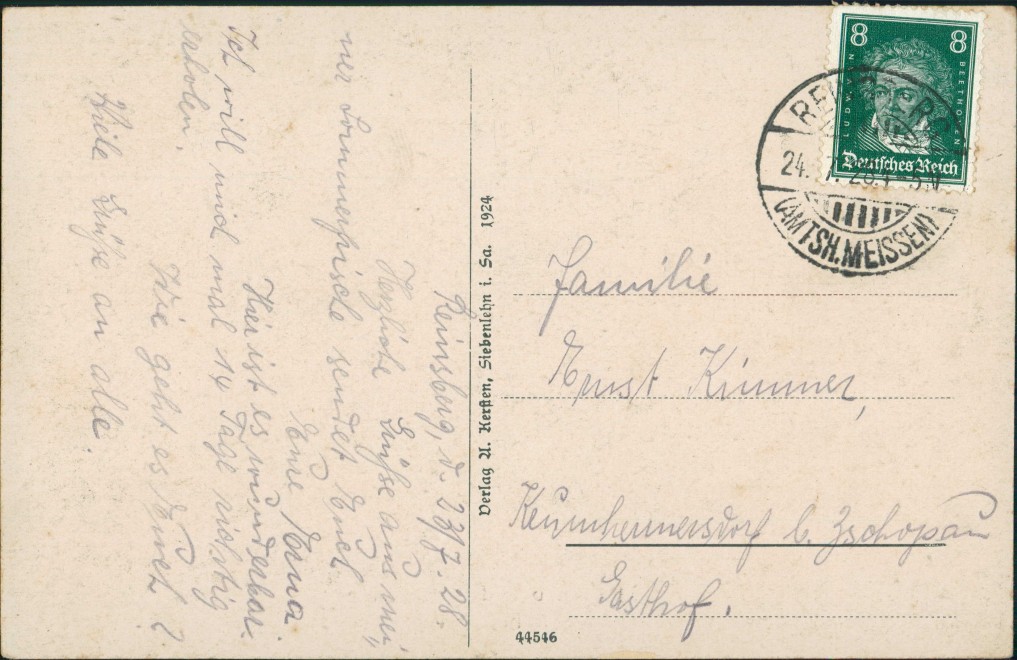 Reinsberg, d. 23/7. 28.
Herzliche Grüße aus mei,
ner Sommerfrische sendet Euch
Eure Erna
Hier ist es wunderbar.
Ich will mich mal 14 Tage richtig
erholen.
Wie geht es Euch?
Viele Grüße an alle.
Verlag A. Kersten, Siebenlehn i. Sa. 1924
8 8
LUDWIG VAN BEETHOVEN
Deutsches Reich
24. 7. 28.
(AMTSH. MEISSEN)
Familie
Ernst Kümmer,
Krumhermersdorf b. Zschopau
Gasthof.
44546